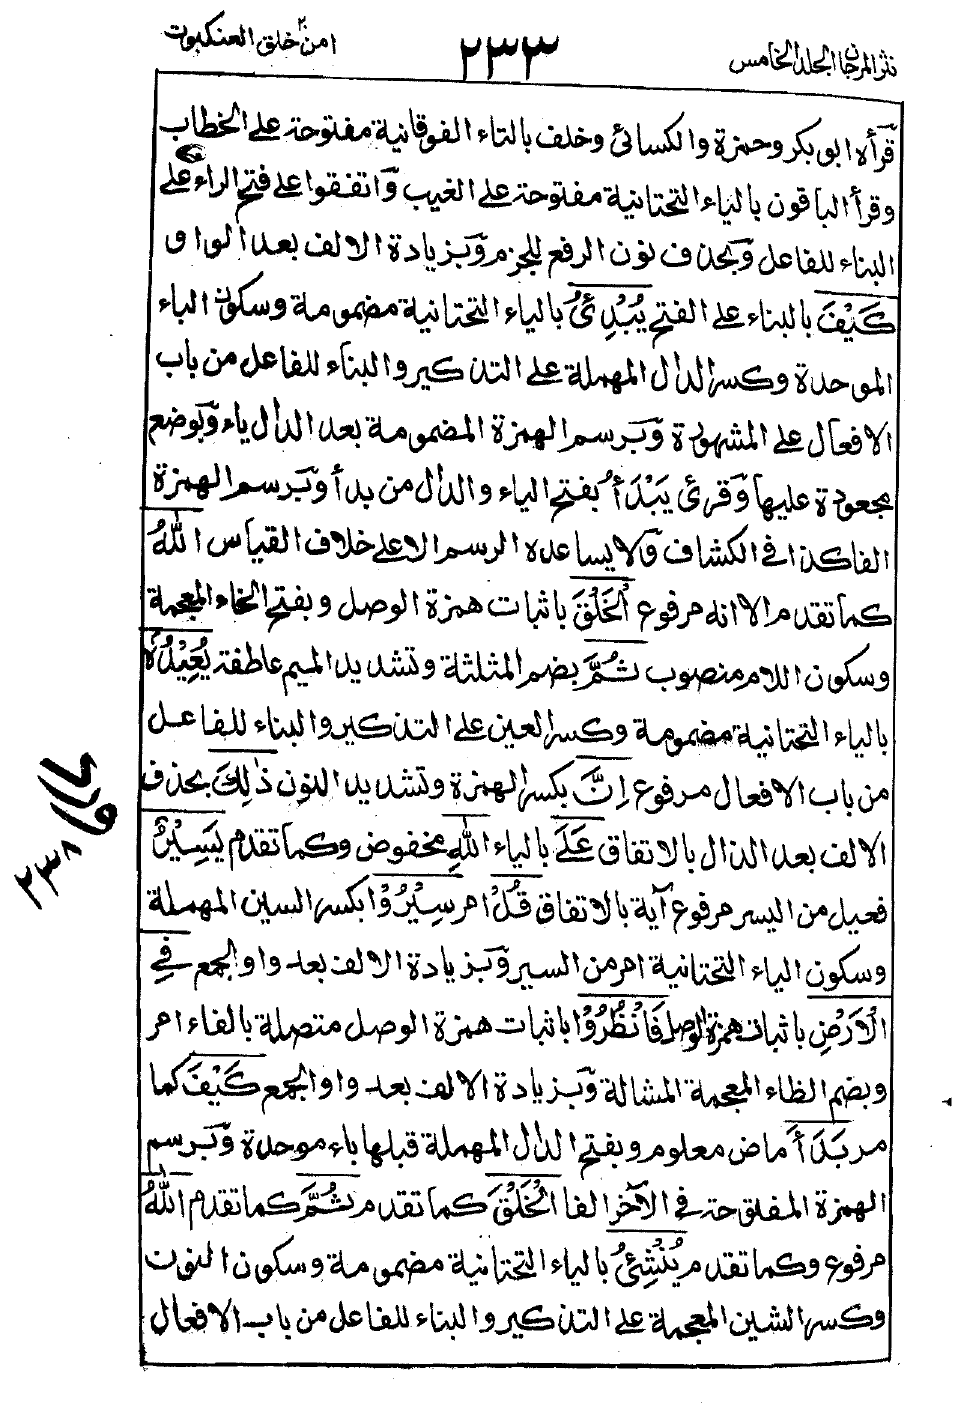 نثر المرجان الجلد الخامس
٢٣٣
امن خلق ٢٠ العنكبوت
قرأه ابو بكر وحمزة والكسائي وخلف بالتاء الفوقانية مفتوحة على الخطاب
وقرأ الباقون بالياء التحتانية مفتوحة على الغيب وٓاتفقوا على فتح الراء على
البناء للفاعل وٓبحذف نون الرفع للجزم وٓبزيادة الالف بعد الواو
كَيْفَ بالبناء على الفتح يُبْدِئُ بالياء التحتانية مضمومة وسكون الباء
الموحدة وكسر الدال المهملة على التذكير والبناء للفاعل من باب
الافعال على المشهورة وٓبرسم الهمزة المضمومة بعد الدال ياء وٓبوضع
مجعودة عليها وٓقرئ يَبْدَأُ بفتح الياء والدال من بدأ وٓبرسم الهمزة
الفا كذا في الكشاف وٓلا يساعده الرسم الا على خلاف القياس اللهُ
كما تقدم الا انه مرفوع الْخَلْقَ باثبات همزة الوصل وبفتح الخاء المعجمة
وسكون اللام منصوب ثُمَّ بضم المثلثة وتشديد الميم عاطفة يُعِيْدُهُ
بالياء التحتانية مضمومة وكسر العين على التذكير والبناء للفاعل
من باب الافعال مرفوع اِنَّ بكسر الهمزة وتشديد النون ذٰلِكَ بحذف
الالف بعد الذال بالاتفاق عَلَى بالياء اللهِ مخفوض وكما تقدم يَسِيْرٌ
فعيل من اليسر مرفوع آية بالاتفاق قُلْ امر سِيْرُوْا بكسر السين المهملة
وسكون الياء التحتانية امر من السير وٓبزيادة الالف بعد واو الجمع فِي
الْاَرْضِ باثبات همزة الوصل فَانْظُرُوْا باثبات همزة الوصل متصلة بالفاء امر
وبضم الظاء المعجمة المشالة وٓبزيادة الالف بعد واو الجمع كَيْفَ كما
مر بَدَأَ ماض معلوم وبفتح الدال المهملة قبلها باء موحدة وٓبرسم
الهمزة المفتوحة في الآخر الفا الْخَلْقَ كما تقدم ثُمَّ كما تقدم اللهُ
مرفوع وكما تقدم يُنْشِئُ بالياء التحتانية مضمومة وسكون النون
وكسر الشين المعجمة على التذكير والبناء للفاعل من باب الافعال
٢٣٨